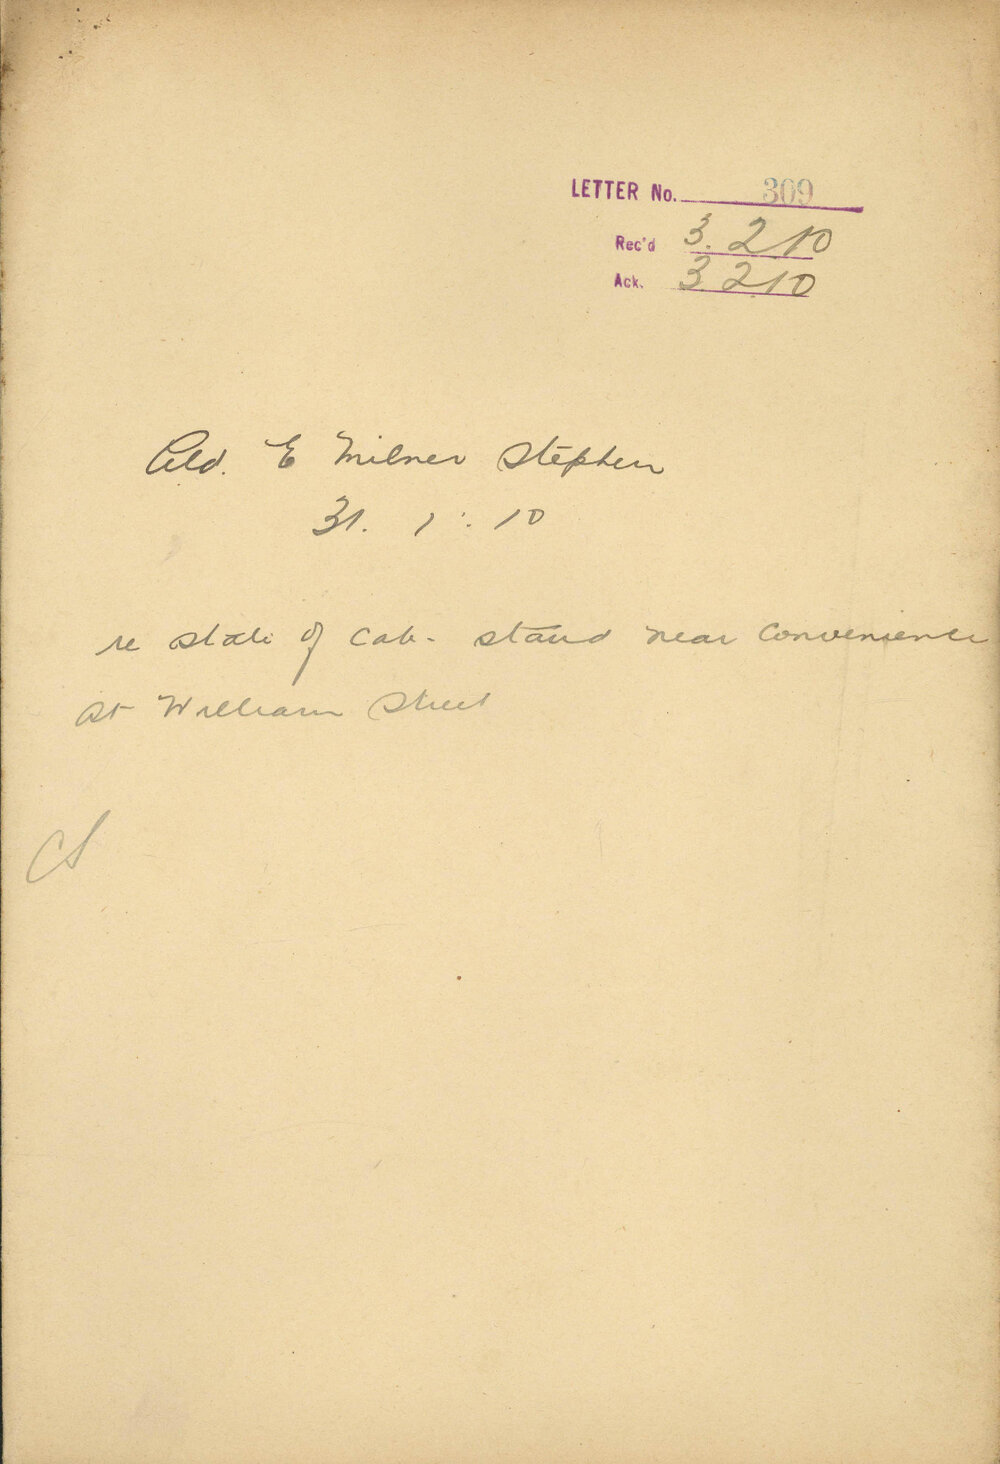 LETTER No. 309
Rec'd 3. 2 10
Ack. 3. 2 10
Ald. E Milner Stephen
31. 1. 10
re state of cab-stand near convenience
at William Street
CS